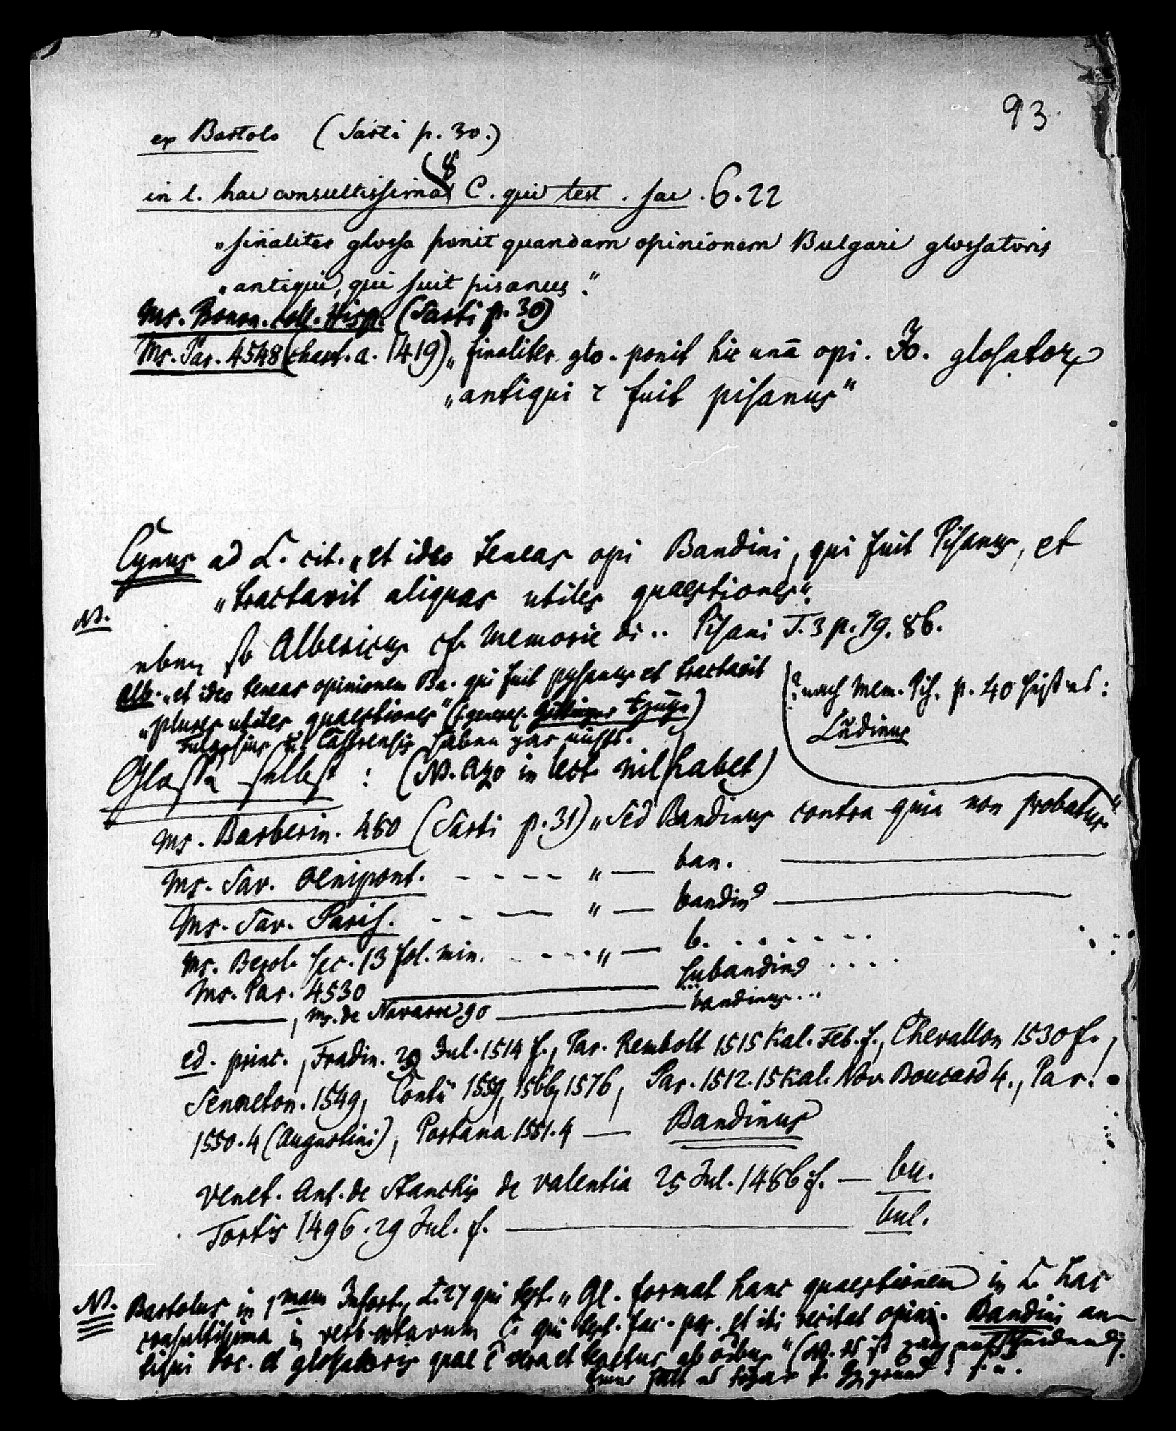 93.
ex Bartolo (Sarti p. 30.)
§
in l. hac consultissima C. qui test. fac. 6.22
„finaliter glossa ponit quandam opinionem Bulgari glossatoris
„antiqui, qui fuit pisanus.“
Ms. Bonon. coll. Hisp. (Sarti p. 30)
Ms. Par. 4548 (chart. a. 1419) „finaliter glo. ponit hic unā opi. Jo. glosator
„antiqui fuit pisanus“
Cynus ad L. cit. „et ideo teneas opi Bandini, qui fuit Pisanus, et
„tractavit aliquas utiles quaestiones“.
N.
eben so Albericus cf. Memorie di .. Pisani T. 3 p. 79. 86.
Alb. „et ideo teneas opinionem Ba. qui fuit pysanus et tractavit
„plures utiles quaestiones“
(? nach Mem. Pis. p. 40 heißt es:
Ludinus
Castrensis haben gar nichts.
Glossa selbst : (NB. Azo in Lect. nil habet)
Ms. Barberin. 460 (Sarti p. 31) „Sed Bandinus contra quia non probatur“
Ms. Sav. Oenipont. - - - - „ — ban. —
Ms. Sav. Paris. - - — „ — bandin9 —
Ms. Berol. sec. 13 fol. min. - - - - „ — b. . . . . . .
Ms. Par. 4530 — bandin9 . . . .
—, Ms. de Navarre 90 — bandinus...
ed. princ., Fradin. 29 Jul. 1514 f., Par. Rembolt 1515 Kal. Feb. f., Chevallon 1530 f.,
Senneton. 1549, Contii 1559, 1566, 1576, Par. 1512. 15 Kal. Nov. Boucard 4., Par.
1550. 4 (Augustini), Portana 1551. 4 — Bandinus
Venet. Ant. de Stanchis de Valentia 25 Jul. 1486 f. — bu.
Tortis 1496. 29 Jul. f. — bul.
NB. Bartolus in Infort. L. 27 qui test. „Gl. format hanc quaestionem in L. hac
consultissima in verb. C. qui test. fac. pos. et ibi recitat opini. Bandini an-
tiqui doc. et glosatoris